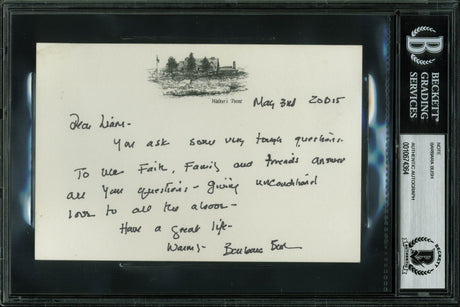 Walker's Point
May 3rd 2005
Dear Liam-
You ask some very tough questions.
To me Faith, Family and friends answer
all your questions - giving unconditional
love to all the above-
Have a great life-
Warmly- Barbara Bush
BECKETT
GRADING
SERVICES
NOTE
BARBARA BUSH
AUTHENTIC AUTOGRAPH
BECKETT